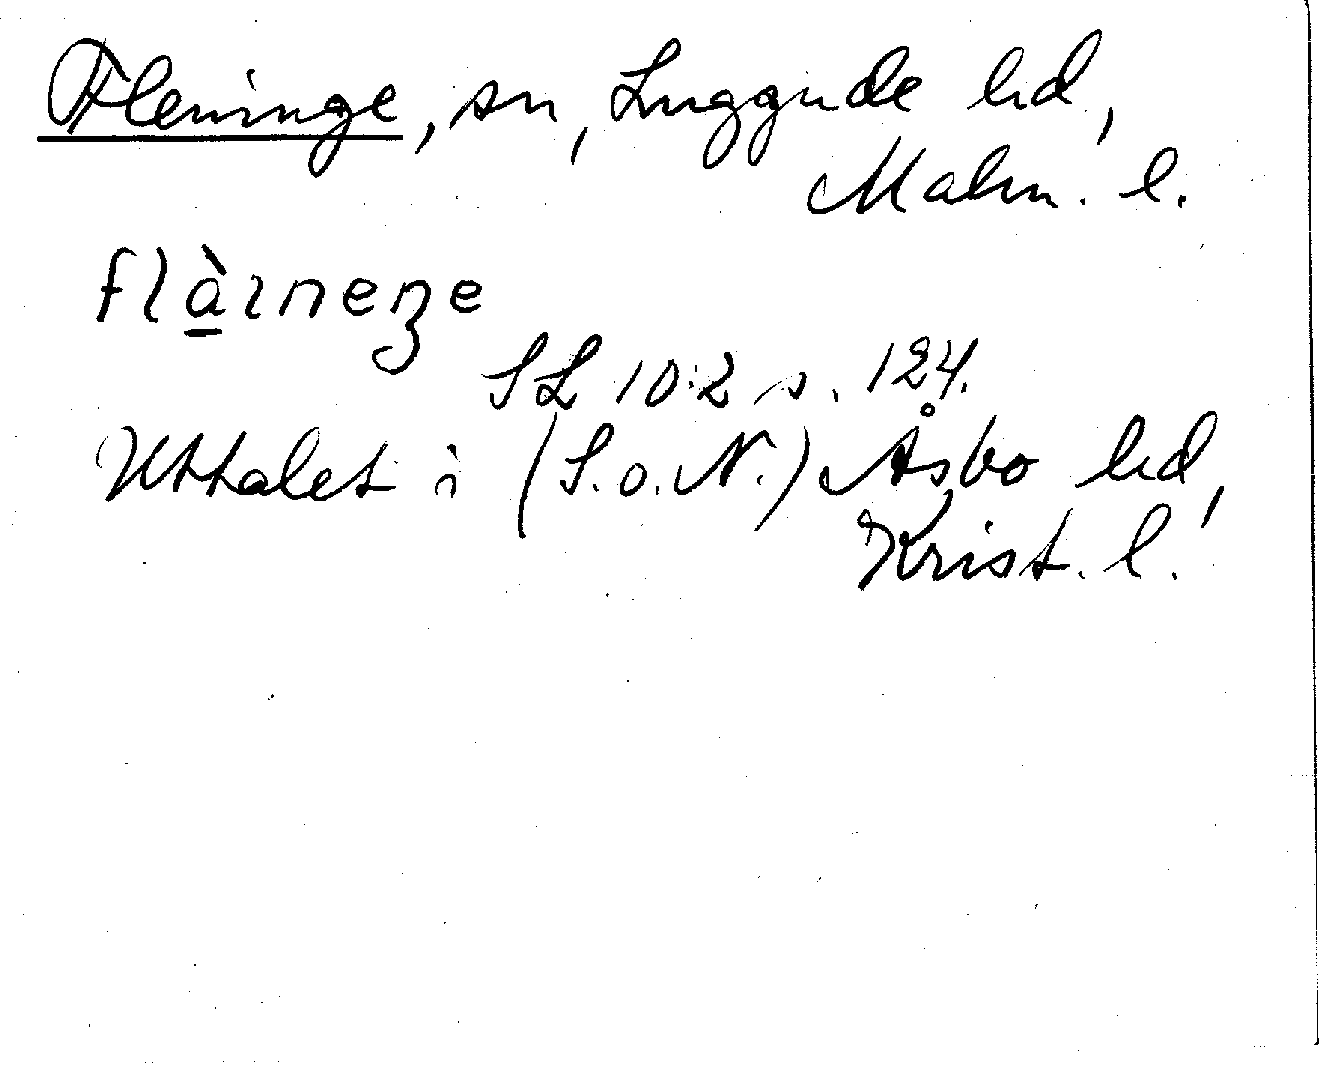 Fleninge, sn, Luggude hd,
Malm. l.
flàıneŋe
SL 10:2 s. 124.
Uttalet i (S. o. N.) Åsbo hd,
Krist. l.